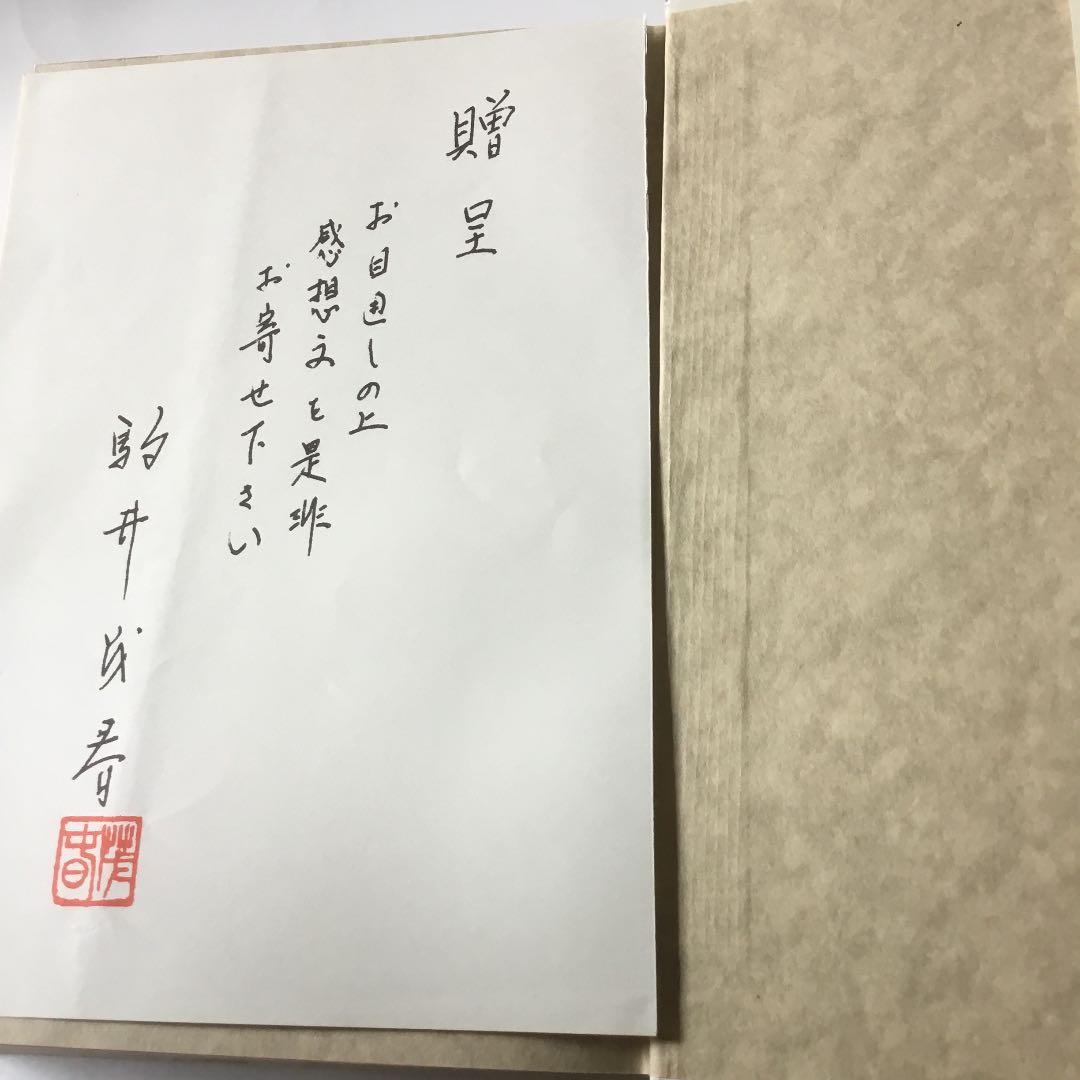 贈呈
お目通しの上
感想文を是非
お寄せ下さい
駒井茂春